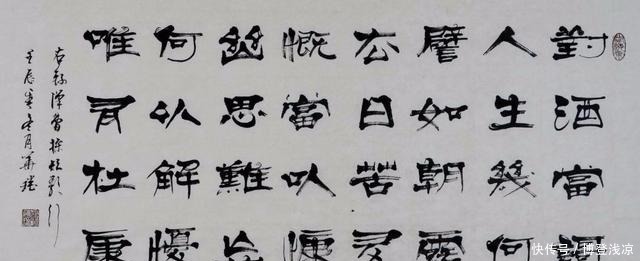 對酒當歌
人生幾何
譬如朝露
去日苦多
慨當以慷
幽思難忘
何以解憂
唯有杜康
右錄漢曹操短歌行
壬辰年冬月
快传号/博登浅凉